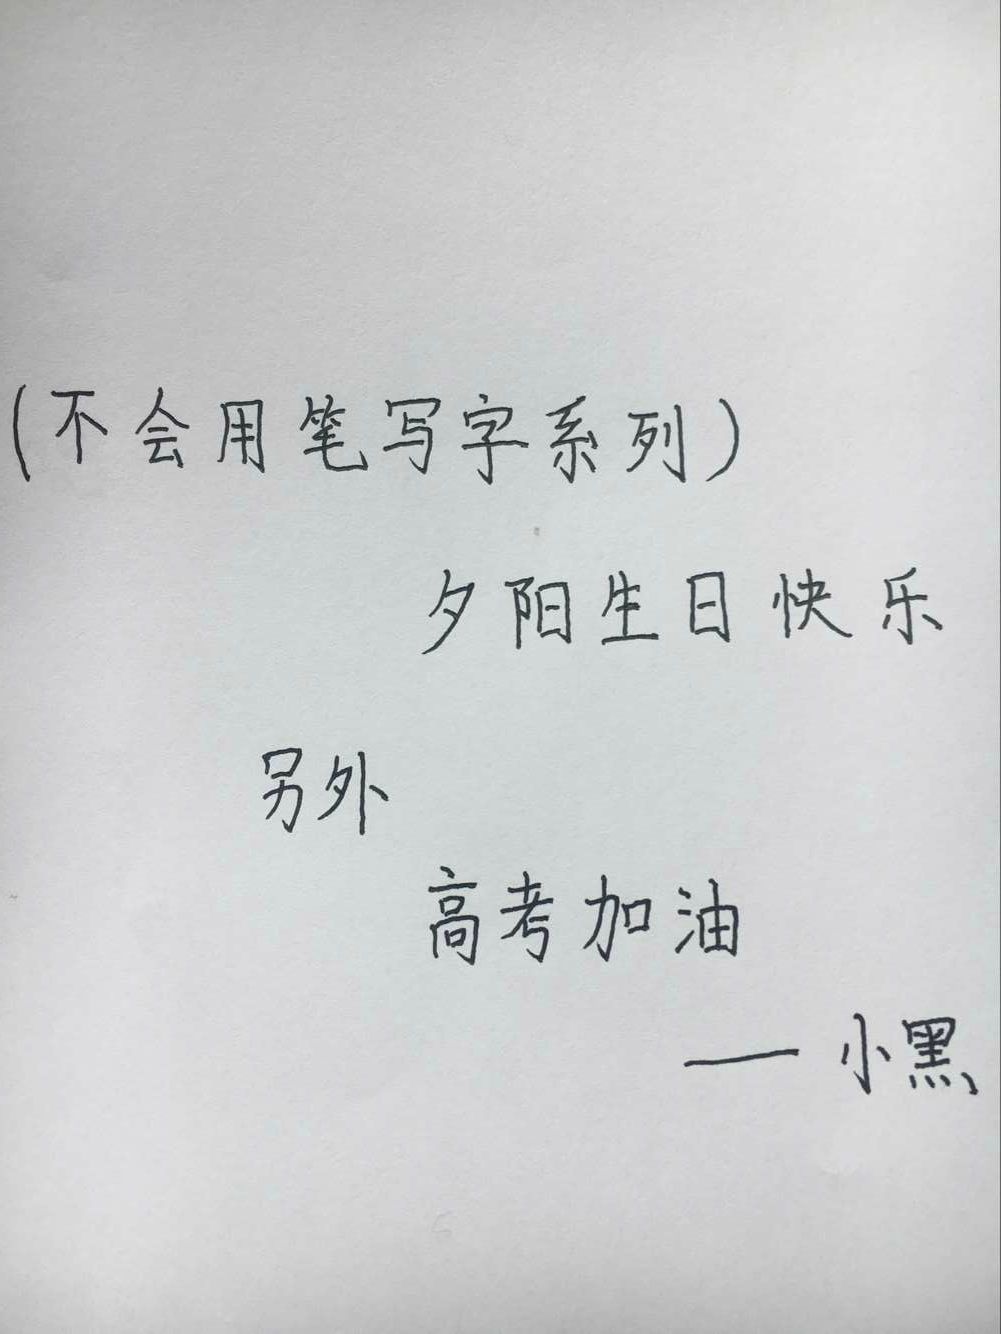 (不会用笔写字系列)
夕阳生日快乐
另外
高考加油
——小黑